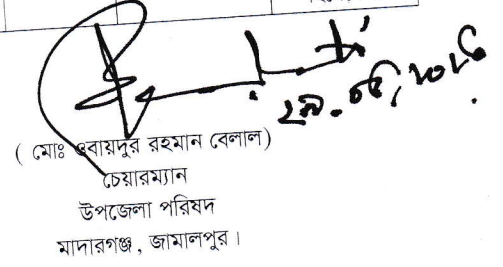 ( মোঃ ওবায়দুর রহমান বেলাল)
চেয়ারম্যান
উপজেলা পরিষদ
মাদারগঞ্জ, জামালপুর।